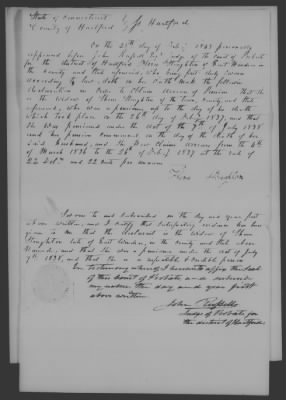 State of Connecticut
County of Hartford } ss Hartford
On the 28th day of July 1843 personally
appeared before John Russell Judge of the Court of Probate
for the district of Hartford, in
the county and State aforesaid, who being first duly sworn
according to law, doth on her oath make the following
declaration in order to obtain arrears of Pension that she
is the widow of of the town, county and state
aforesaid, who was a pensioner up to the day of his death
which took place on the 26th of 1837, and that
she was pensioned under the act of the 7th of July 1838
and her pension commenced on the day of the death of her
said husband, and she now claims arrears from the 4th
of March 1836 to the 26th of 1837 at the rate of
22 Dol and 22 cents per annum
Sworn to and subscribed on the day and year first
above written, and I certify that satisfactory evidence has been
given to me that the declarant is the widow of
late of East Windsor, in the county and state above
named, and that she was a pensioner under the act of July
7th 1838, and that she is a respectable & credible person
In testimony whereof I hereunto affix the seal
of this Court of Probate and subscribe
my name the day and year first
above written
John Russell
Judge of Probate for
the district of Hartford